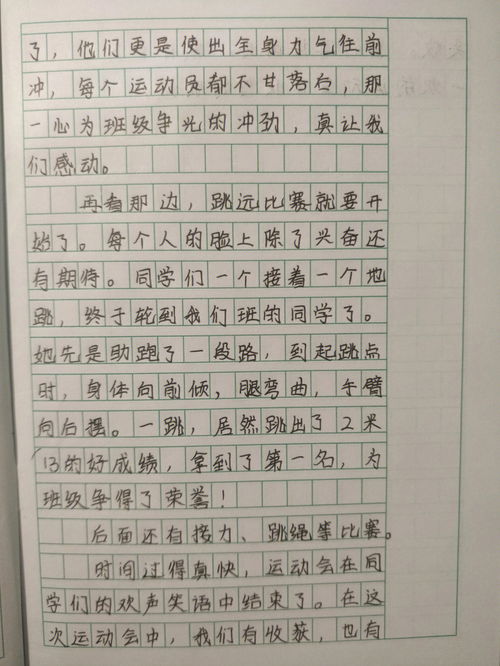 了，他们更是使出全身力气往前
冲，每个运动员都不甘落后，那
一心为班级争光的冲劲，真让我
们感动。
再看那边，跳远比赛就要开
始了。每个人的脸上除了兴奋还
有期待。同学们一个接着一个地
跳，终于轮到我们班的同学了。
她先是助跑了一段路，到起跳点
时，身体向前倾，腿弯曲，手臂
向后摆。一跳，居然跳出了2米
13的好成绩，拿到了第一名，为
班级争得了荣誉！
后面还有接力、跳绳等比赛。
时间过得真快，运动会在同
学们的欢声笑语中结束了。在这
次运动会中，我们有收获，也有